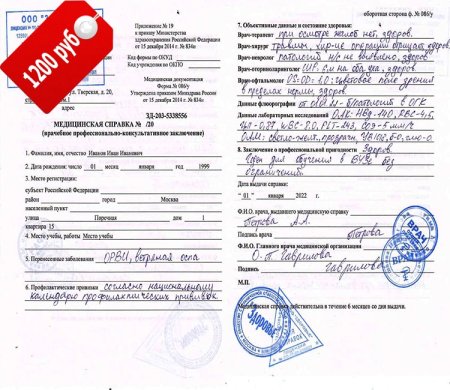 1200 руб
ООО
4
Приложение № 19
к приказу Министерства
здравоохранения Российской Федерации
от 15 декабря 2014 г. № 834н
Код формы по ОКУД
Код учреждения по ОКПО
Медицинская документация
Форма № 086/у
Утверждена приказом Минздрава России
от 15 декабря 2014 г. № 834н
ул. Тверская, д. 20,
ЗД-203-5338556
МЕДИЦИНСКАЯ СПРАВКА № /20
(врачебное профессионально-консультативное заключение)
1. Фамилия, имя, отчество Иванов Иван Иванович
2. Дата рождения: число 01 месяц января год 1999
3. Место регистрации:
субъект Российской Федерации
район Москва город Москва
населенный пункт
улица Поречная дом 1
квартира 15
4. Место учебы, работы Место учебы
5. Перенесенные заболевания ОРВИ, ветряная оспа
6. Профилактические прививки согласно национальному
календарю профилактических прививок
ЗДОРОВЬЕ
оборотная сторона ф. № 086/у
7. Объективные данные и состояние здоровья:
Врач-терапевт при осмотре жалоб нет. здоров.
Врач-хирург травмы, хир-ие операции отрицает, здоров
Врач-невролог патологий н/с не выявлено, здоров
Врач-оториноларинголог ш/р 6 м на оба уха, здоров
Врач-офтальмолог OS=OD=1.0; цветовое поле зрения
в пределах нормы, здоров.
Данные флюорографии
Данные лабораторных исследований
8. Заключение о профессиональной пригодности Здоров.
Годен для обучения в ВУЗе без
ограничений.
Дата выдачи справки:
" 01 " января 2022 г.
Ф.И.О. врача, выдавшего медицинскую справку
Петрова А.А.
Подпись врача Петрова
Ф.И.О. Главного врача медицинской организации
Гаврилова
Подпись Гаврилова
М.П.
ВРАЧ
ВРАЧ
ЗДОРОВЬЕ
Медицинская справка действительна в течение 6 месяцев со дня выдачи.